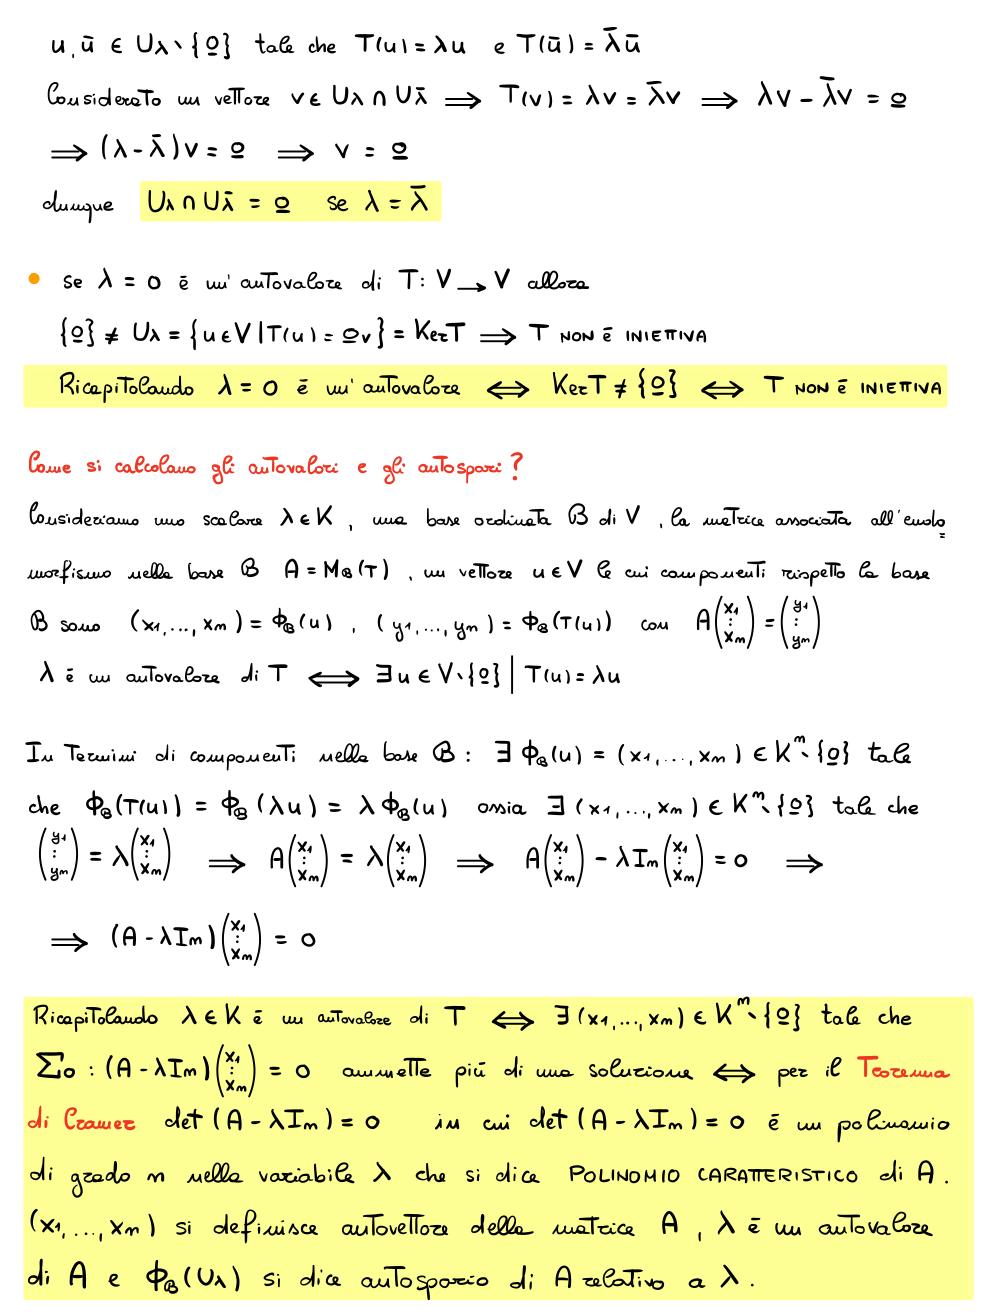 u, ū ∈ Uλ∖{0} tale che T(u) = λu e T(ū) = λ̄ū
Considerato un vettore v ∈ Uλ ∩ Uλ̄ ⟹ T(v) = λv = λ̄v ⟹ λv - λ̄v = 0
⟹ (λ - λ̄)v = 0 ⟹ v = 0
dunque Uλ ∩ Uλ̄ = 0 se λ = λ̄
• se λ = 0 è un'autovalore di T: V → V allora
{0} ≠ Uλ = {u ∈ V | T(u) = 0v} = KerT ⟹ T NON È INIETTIVA
Ricapitolando λ = 0 è un'autovalore ⟺ KerT ≠ {0} ⟺ T NON È INIETTIVA
Come si calcolano gli autovalori e gli autospazi?
Consideriamo uno scalare λ ∈ K, una base ordinata B di V, la matrice associata all'endo=
morfismo nella base B A = MB(T), un vettore u ∈ V le cui componenti rispetto la base
B sono (x1,...,xn) = ΦB(u), (y1,...,yn) = ΦB(T(u)) con A(x1 ⋮ xn) = (y1 ⋮ yn)
λ è un autovalore di T ⟺ ∃u ∈ V∖{0} | T(u) = λu
In Termini di componenti nella base B: ∃ ΦB(u) = (x1,...,xn) ∈ Kⁿ∖{0} tale
che ΦB(T(u)) = ΦB(λu) = λΦB(u) ossia ∃(x1,...,xn) ∈ Kⁿ∖{0} tale che
(y1 ⋮ yn) = λ(x1 ⋮ xn) ⟹ A(x1 ⋮ xn) = λ(x1 ⋮ xn) ⟹ A(x1 ⋮ xn) - λIn(x1 ⋮ xn) = 0 ⟹
⟹ (A - λIn)(x1 ⋮ xn) = 0
Ricapitolando λ ∈ K è un autovalore di T ⟺ ∃(x1,...,xn) ∈ Kⁿ∖{0} tale che
Σ0 : (A - λIn)(x1 ⋮ xn) = 0 ammette più di una soluzione ⟺ per il Teorema
di Cramer det(A - λIn) = 0 in cui det(A - λIn) = 0 è un polinomio
di grado n nella variabile λ che si dice POLINOMIO CARATTERISTICO di A.
(x1,...,xn) si definisce autovettore della matrice A, λ è un autovalore
di A e ΦB(Uλ) si dice autospazio di A relativo a λ.